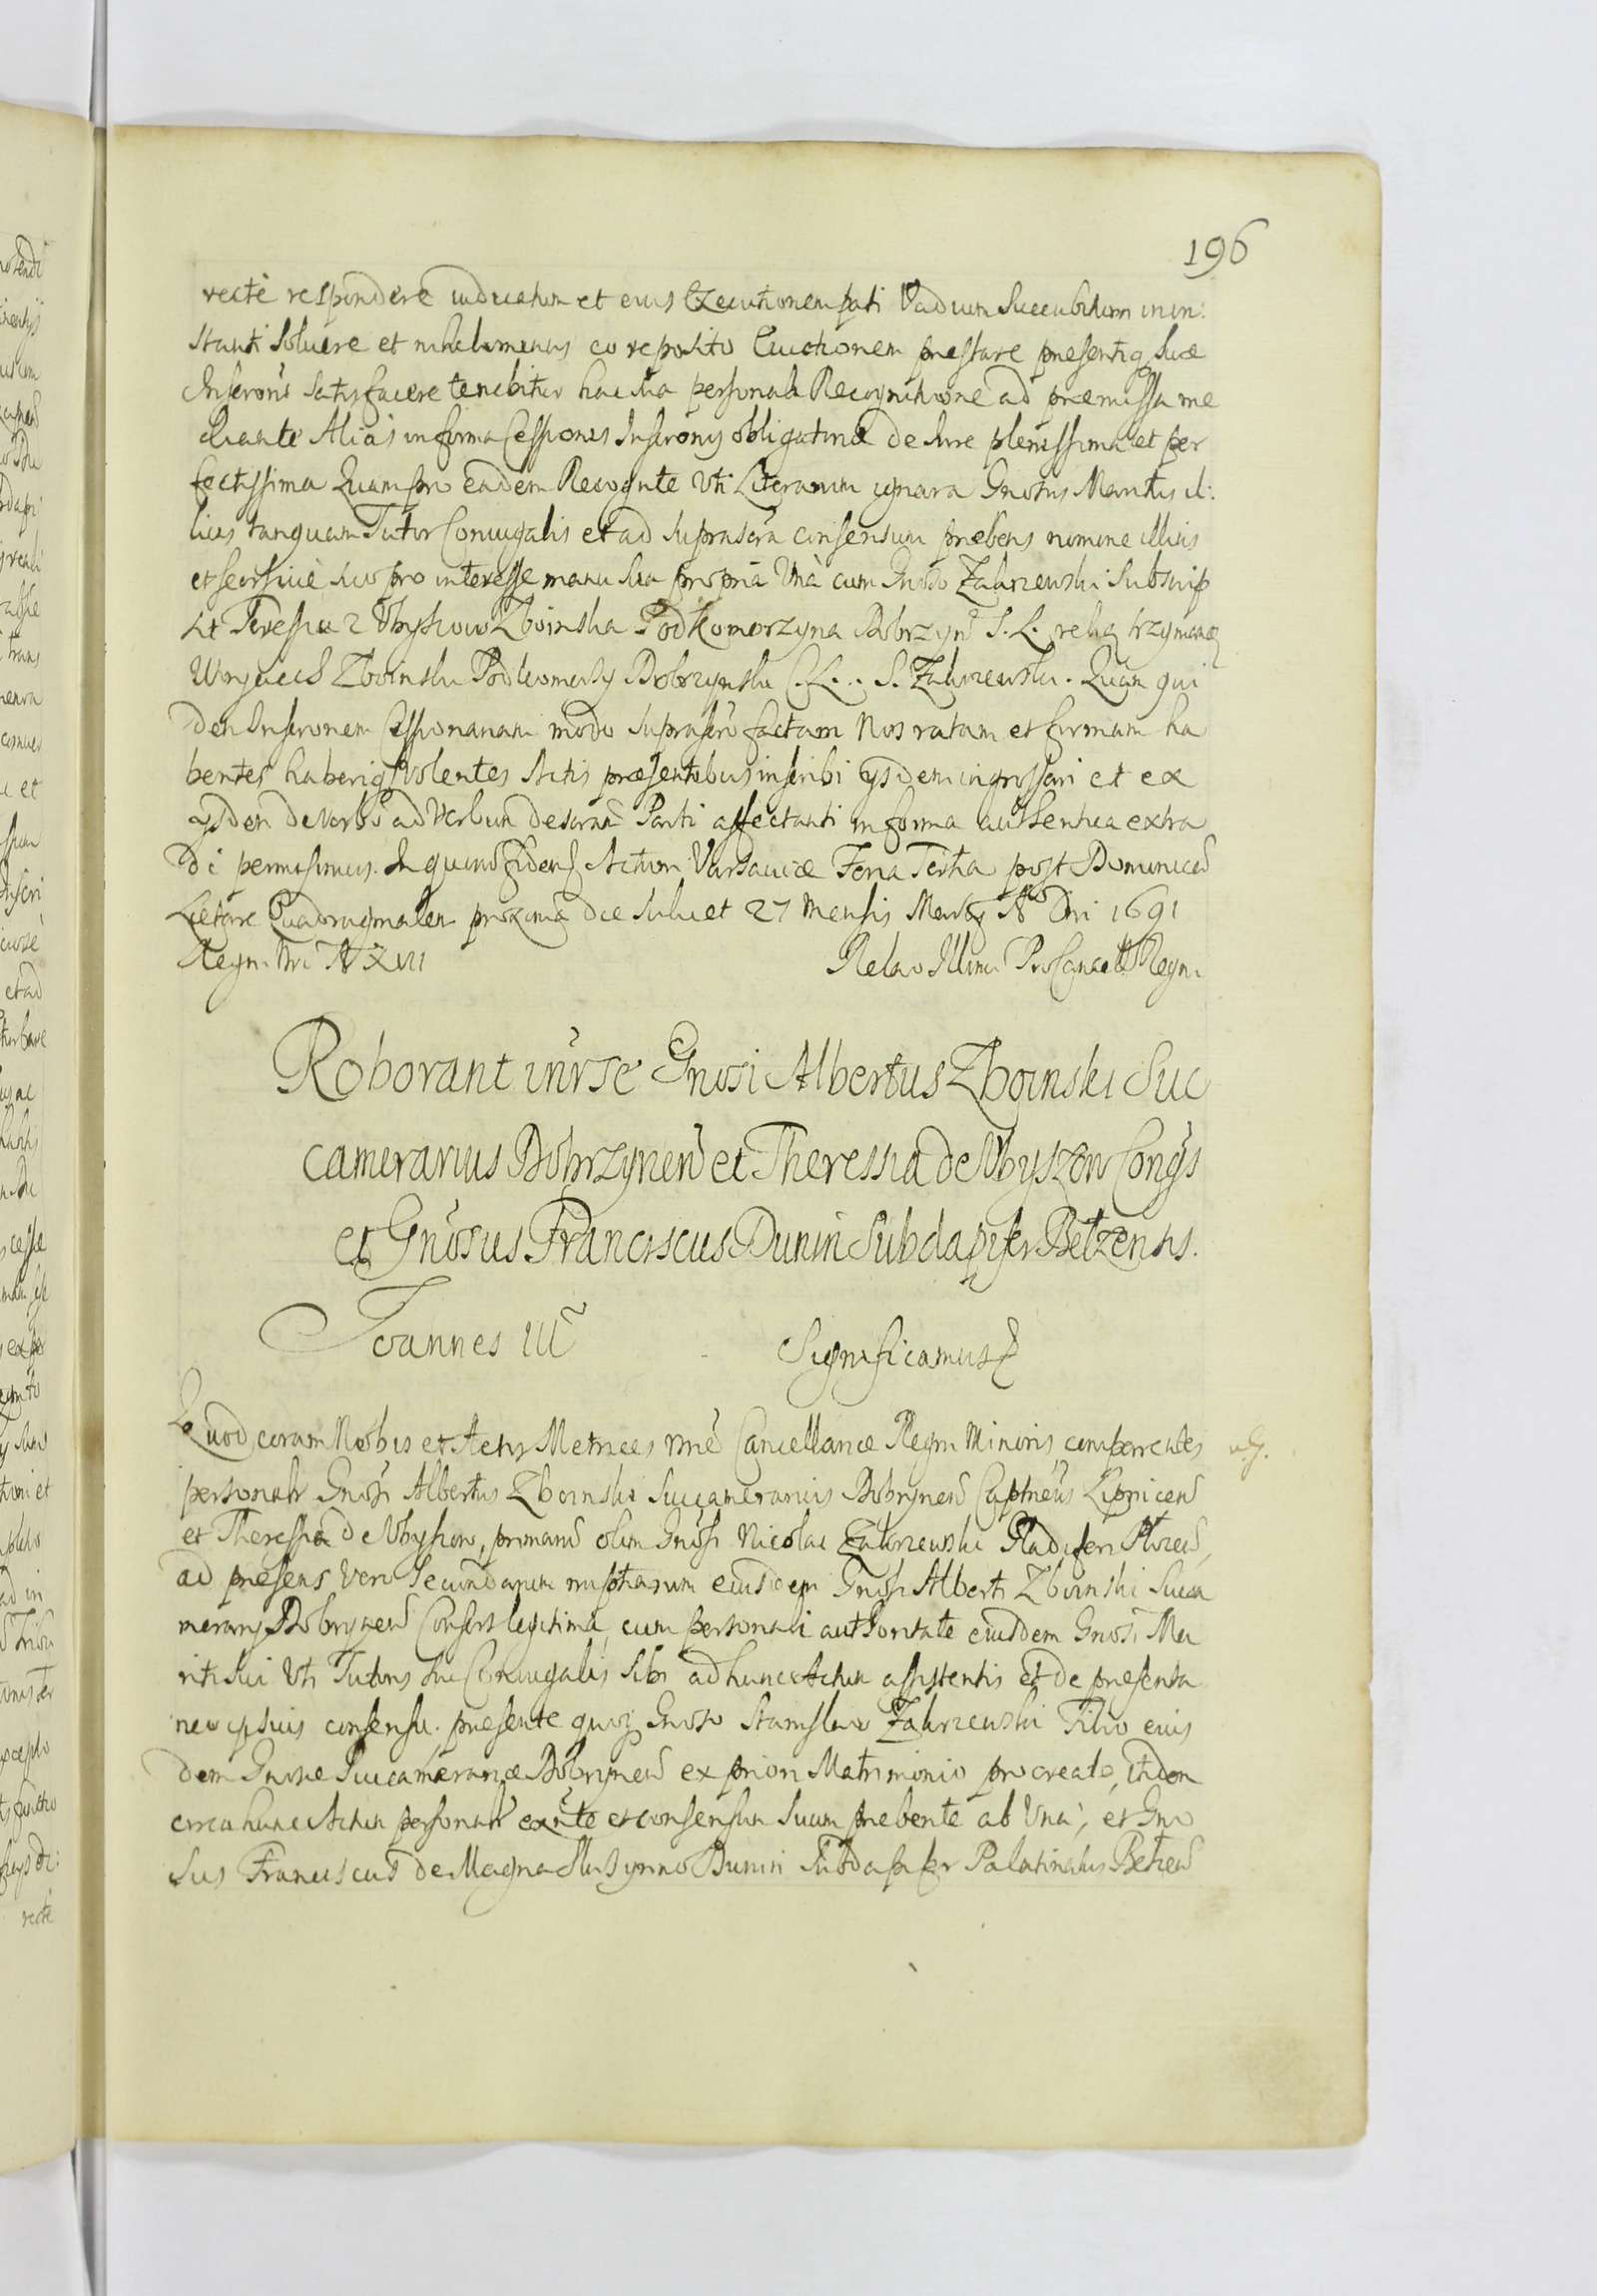 196
recte respondere iudicatum et eius Executionem pati Vadium succubitum in in:
stanti soluere et nihilominus eo reposito Euictionem prestare presentiq suæ
Inscrōni satisfacere tenebitur hac sua personali Recognitione ad præmissa me
diante Alias in forma Cessionis Inscrōnis obligatoriæ de Iure plenissima et per
fectissima Quam pro eadem Recognte Uti Literarum ignara Gnosus Maritus il:
lius tanquam Tutor Coniugalis et ad suprascra consensum præbens nomine illius
et seorsiuè suo pro interesse manu sua propria Unà cum Gnoso Zakrzewski subscrip
sit Teressa z Ubyszow Zboinska Podkomorzyna Dobrzyn S. L. reką trzymaną
Woyciech Zboinski Podkomorzy Dobrzynski S. L. S. Zakrzewski. Quam qui
dem Inscronem Cessionariam modo suprascro factam Nos ratam et firmam ha
bentes haberiq volentes Actis præsentibus inscribi ysdem ingrossari et ex
ysdem de Verbo ad Verbum descriptã Parti affectanti in forma authentica extra
di permisimus. In quorũ fidem Actum Varsauiæ Feria Tertia post Dominicã
Lætare Quadragesimalem proxima die scilicet 27 mensis Martÿ Aº Dni 1691
Regn. Nri Aº XVII Relao Illmi ProCancell Regni
Roborant inṽr se Gnosi Albertus Zboinski Suc
camerarius Dobrzynen et Theressia de Ubyszow Cong̃s
et Gnosus Franciscus Dunin Subdapifer Belzensis.
Joannes III Significamus
Quod coram Nobis et Actis Metrices nrae Cancellariæ Regni Minoris comparentes
personalr Gnosi Albertus Zboinski Succamerarius Dobrynen Capitneus Lipnicen
et Theressia de Ubyszow, primarũ olim Gnosi Nicolai Zakrzewski Gladiferi
ad præsens Vero secundarum nuptiarum eiusdem Gnosi Alberti Zboinski Succa
merarÿ Dobrynen Consors legitima, cum personali authoritate eiusdem Gnosi Ma
riti sui Uti Tutoris sui Coniugalis sibi ad hunc Actum assistentis et de presenta
neo ipsius consensu. presente quoq Gnoso Stanislao Zakrzewski Filio eius
dem Gnosae Succamerariæ Dobrynen ex priori Matrimonio procreato, itidem
circa hunc Actum personalr exnte et consensum suum prebente ab Una, et Gno
sus Franciscus de Magna Skrzynno Dunin Subdapifer Palatinatus Belzen